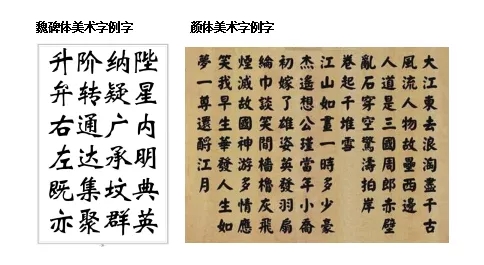 魏碑体美术字例字
升阶纳陛
弁转疑星
右通广内
左达承明
既集坟典
亦聚群英
颜体美术字例字
大江東去浪淘盡千古
風流人物故壘西邊
人道是三國周郎赤壁
亂石穿空驚濤拍岸
卷起千堆雪
江山如畫一時多少豪
杰遙想公瑾當年小喬
初嫁了雄姿英發羽扇
綸巾談笑間檣櫓灰飛
煙滅故國神游多情應
笑我早生華發人生如
夢一尊還酹江月